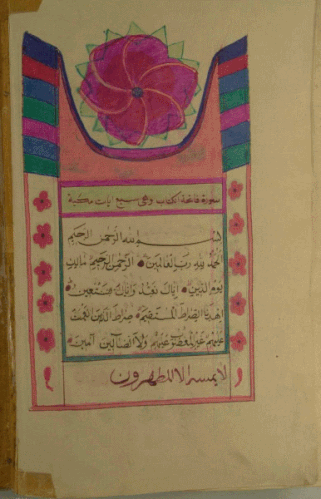 سورة فاتحة الكتاب وهى سبع ايات مكية
بسم الله الرحمن الرحيم
الحمد لله رب العالمين الرحمن الرحيم مالك
يوم الدين اياك نعبد واياك نستعين
اهدنا الصراط المستقيم صراط الذين انعمت
عليهم غير المغضوب عليهم ولا الضالين آمين
لا يمسه الا المطهرون